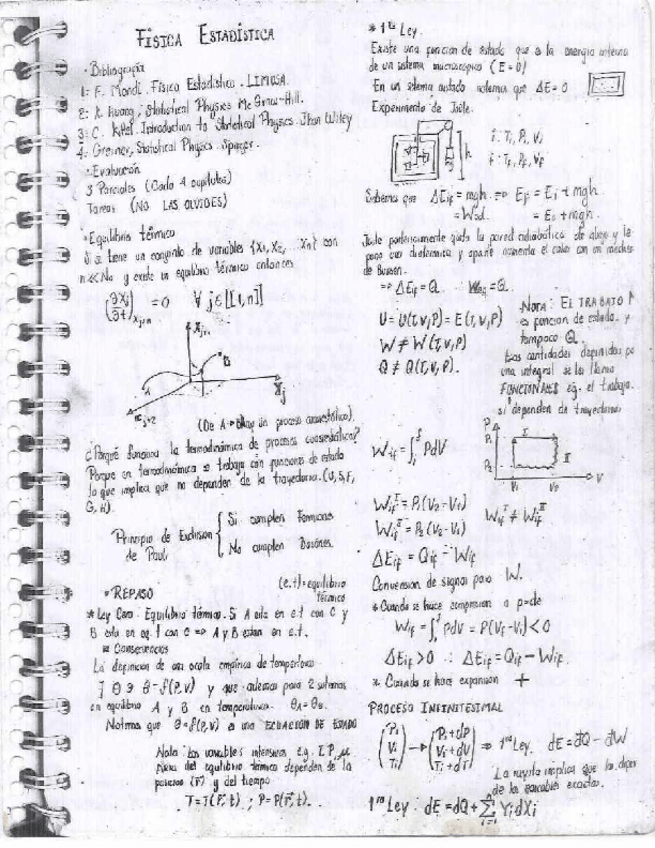 FÍSICA ESTADÍSTICA
· Bibliografía
1: F. Mandl. Física Estadística. LIMUSA.
2: K. Huang, Statistical Physics Mc Graw-Hill.
3: C. Kittel. Introduction to Statistical Physics. Jhon Wiley
4. Greiner, Statistical Physics. Springer.
· Evaluación
3 Parciales (Cada 4 capítulos)
Tareas (NO LAS OLVIDES)
· Equilibrio térmico
Si se tiene un conjunto de variables {X₁, X₂, ... Xₙ} con
n << N₀ y existe un equilibrio térmico entonces
= 0 ∀ j∈[[1,n]]
A
B
(De A → B hay un proceso cuasiestático).
¿Porqué funciona la termodinámica de procesos cuasiestáticos?
Porque en termodinámica se trabaja con funciones de estado
lo que implica que no dependen de la trayectoria. (U, S, F,
G, H).
Principio de Exclusión
de Pauli
Si cumplen Fermiones
No cumplen Bosones.
(e.t) = equilibrio
térmico
* REPASO
* Ley Cero: Equilibrio térmico. Si A está en e.t con C y
B está en eq. t con C => A y B están en e.t.
Consecuencias
La definición de una escala empírica de temperatura
∃ θ ∋ θ = f(P,V) y que además para 2 sistemas
en equilibrio A y B en temperaturas θA = θB.
Notemos que θ = f(P,V) es una ECUACIÓN DE ESTADO
Nota: Las variables intensivas e.g. T, P, μ
fuera del equilibrio térmico dependen de la
posición (r⃗) y del tiempo.
T = T(r⃗, t) ; P = P(r⃗, t).
* 1ra Ley.
Existe una función de estado que es la energía interna
de un sistema macroscópico (E = U)
En un sistema aislado notemos que ΔE = 0
Experimento de Joule.
h
i: Ti, Pi, Vi
f: Tf, Pf, Vf
Sabemos que ΔEif = mgh. => Ef = Ei + mgh
Joule posteriormente quita la pared adiabática de abajo y le
pone una diatérmica y aparte aumenta el calor con un mechero
de Bunsen.
=> ΔEif = Q
U = U(T,V,P) = E(T,V,P)
W ≠ W(T,V,P)
Q ≠ Q(T,V,P).
NOTA: EL TRABAJO
es función de estado, y
tampoco Q.
Las cantidades definidas por
una integral se les llama
FUNCIONALES e.g. el trabajo.
si dependen de trayectorias
Wif = ∫ᵢᶠ PdV
P
P₁
P₂
I
II
V
Wif^I = P₁(V₂ - V₁)
Wif^II = P₂(V₂ - V₁)
Wif^I ≠ Wif^II
ΔEif = Qif - Wif
Convención de signos para W.
* Cuando se hace compresión a p=cte
Wif = ∫ᵢᶠ PdV = P(Vf - Vi) < 0
ΔEif > 0 ∴ ΔEif = Qif - Wif.
* Cuando se hace expansión +
PROCESO INFINITESIMAL
(Pi, Vi, Ti) → (Pi + dP, Vi + dV, Ti + dT) => 1ra Ley. dE = đQ - đW
La rayita implica que las difer
de las variables exactas.
1ra Ley: dE = đQ + Σ Yi dXi
i=1